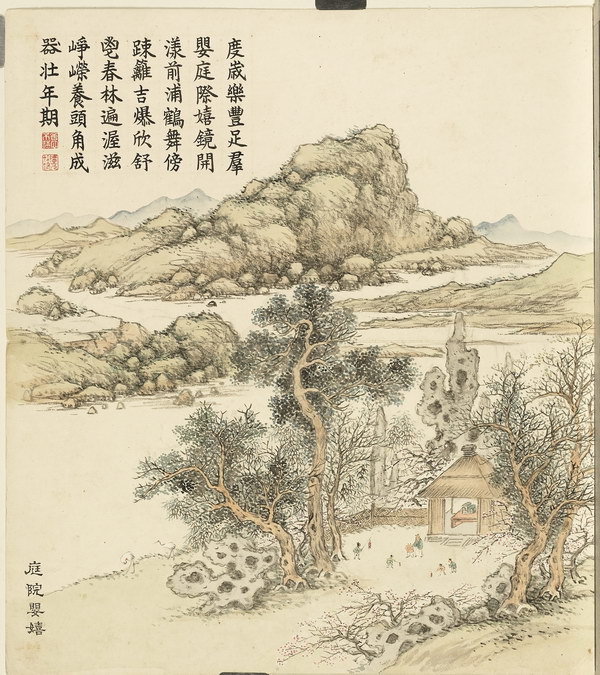 度歲樂豐足羣
嬰庭際嬉鏡開
漾前浦鶴舞傍
疎籬吉爆欣舒
鬯春林遍渥滋
崢嶸養頭角成
器壯年期
庭院嬰嬉